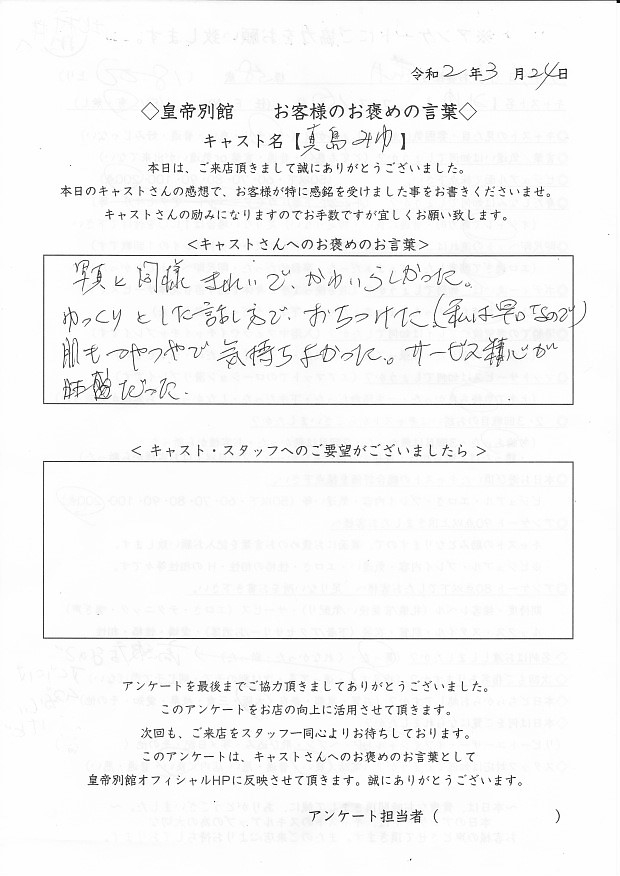 令和2年3月24日
◇皇帝別館　お客様のお褒めの言葉◇
キャスト名【真島みゆ】
本日は、ご来店頂きまして誠にありがとうございました。
本日のキャストさんの感想で、お客様が特に感銘を受けました事をお書きくださいませ。
キャストさんの励みになりますのでお手数ですが宜しくお願い致します。
<キャストさんへのお褒めのお言葉>
写真と同様きれいで、かわいらしかった。
ゆっくりとした話し方で、おちついた。(私は早口なので)
肌もつやつやで気持ちよかった。サービス精心が
旺盛だった.
< キャスト・スタッフへのご要望がございましたら >
アンケートを最後までご協力頂きましてありがとうございました。
このアンケートをお店の向上に活用させて頂きます。
次回も、ご来店をスタッフ一同心よりお待ちしております。
このアンケートは、キャストさんへのお褒めのお言葉として
皇帝別館オフィシャルHPに反映させて頂きます。誠にありがとうございます。
アンケート担当者（　　　　　　　）